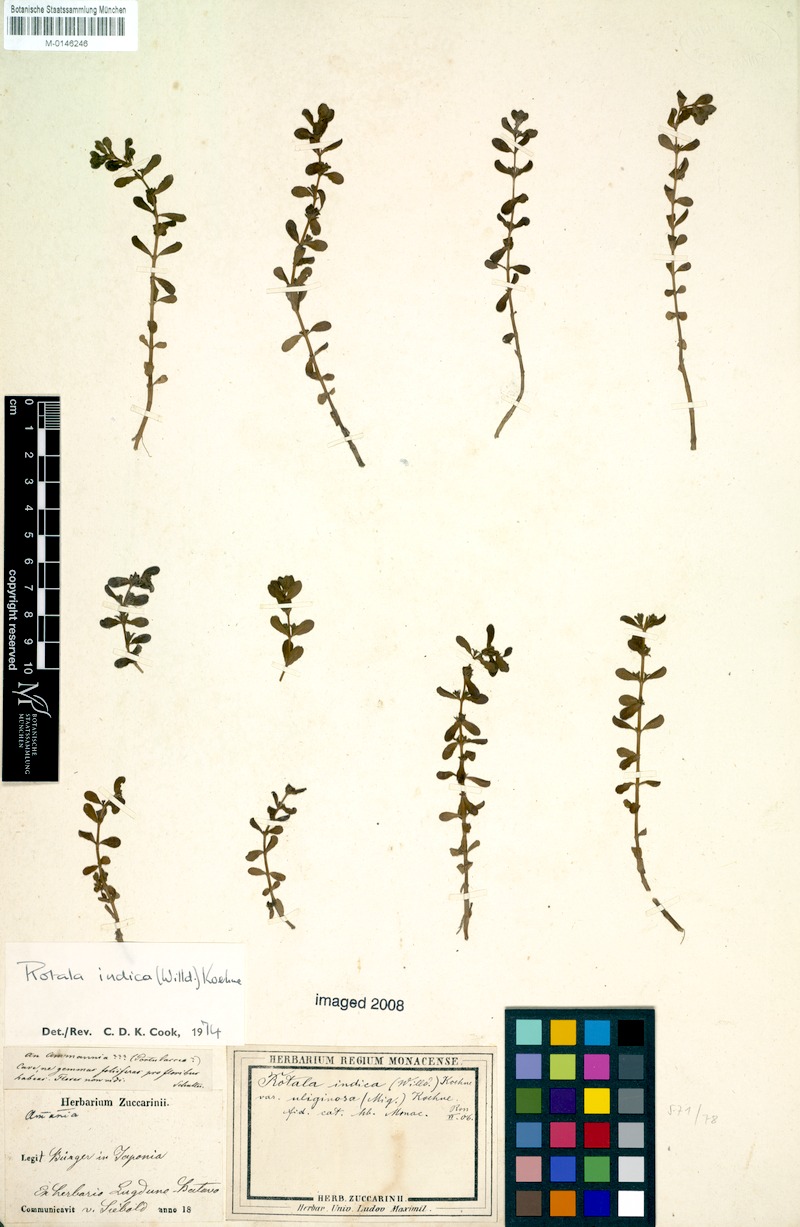 Botanische Staatssammlung München
M-0146246
cm 0 1 2 3 4 5 6 7 8 9 10
copyright reserved
BOTANISCHE
STAATSSAMMLUNG
MÜNCHEN
Rotala indica (Willd.) Koehne
Det./Rev. C. D. K. Cook, 1974
imaged 2008
An Ammannia ??? (Portulacea?)
Cave, ne gemmas foliiferas pro floribus
habeas. Flores non vidi.
Herbarium Zuccarinii.
Amania
Legit Bürger in Japonia
Ex herbario Lugduno Batavo
Communicavit v. Siebold anno 18
HERBARIUM REGIUM MONACENSE.
Rotala indica (Willd.) Koehne
var. uliginosa (Miq.) Koehne.
fid. cat. hb. Monac.
II.06.
HERB. ZUCCARINII.
Herbar. Univ. Ludov. Maximil.
571/78